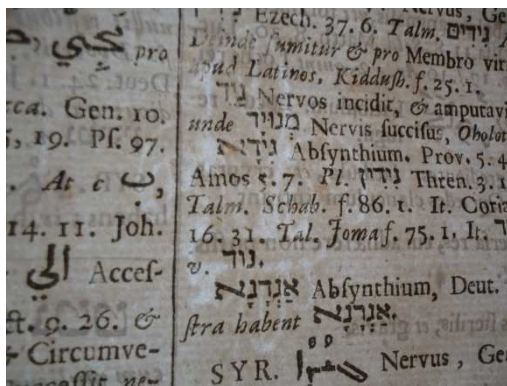 pro
cca. Gen. 10.
5, 19. Ps. 97.
At c ب,
14. 11. Joh.
الي Acces-
ct. 9. 26. &
Circumve-
Nervus, Ge
Ezech. 37. 6. Talm. גידים
Deinde sumitur & pro Membro vir
apud Latinos, Kiddush. f. 25. 1.
גיד Nervos incidit, & amputavi
unde מנויד Nervis succisus, Oholot
גידא Absynthium. Prov. 5. 4
Amos 5. 7. Pl. גידין Thren. 3. 1
Talm. Schab. f. 86. 1. It. Coria
16. 31. Tal. Joma f. 75. 1. It.
v. גוד.
Absynthium, Deut.
stra habent
SYR. Nervus, Ge